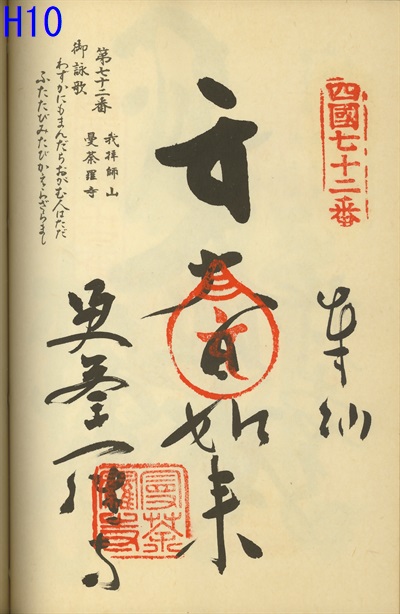 H10
四國七十二番
奉納
大日如来
曼荼羅寺
第七十二番
我拝師山
曼荼羅寺
御詠歌
わずかにもまんだらおがむ人はただ
ふたたびみたびかえらざらまし
曼荼羅寺